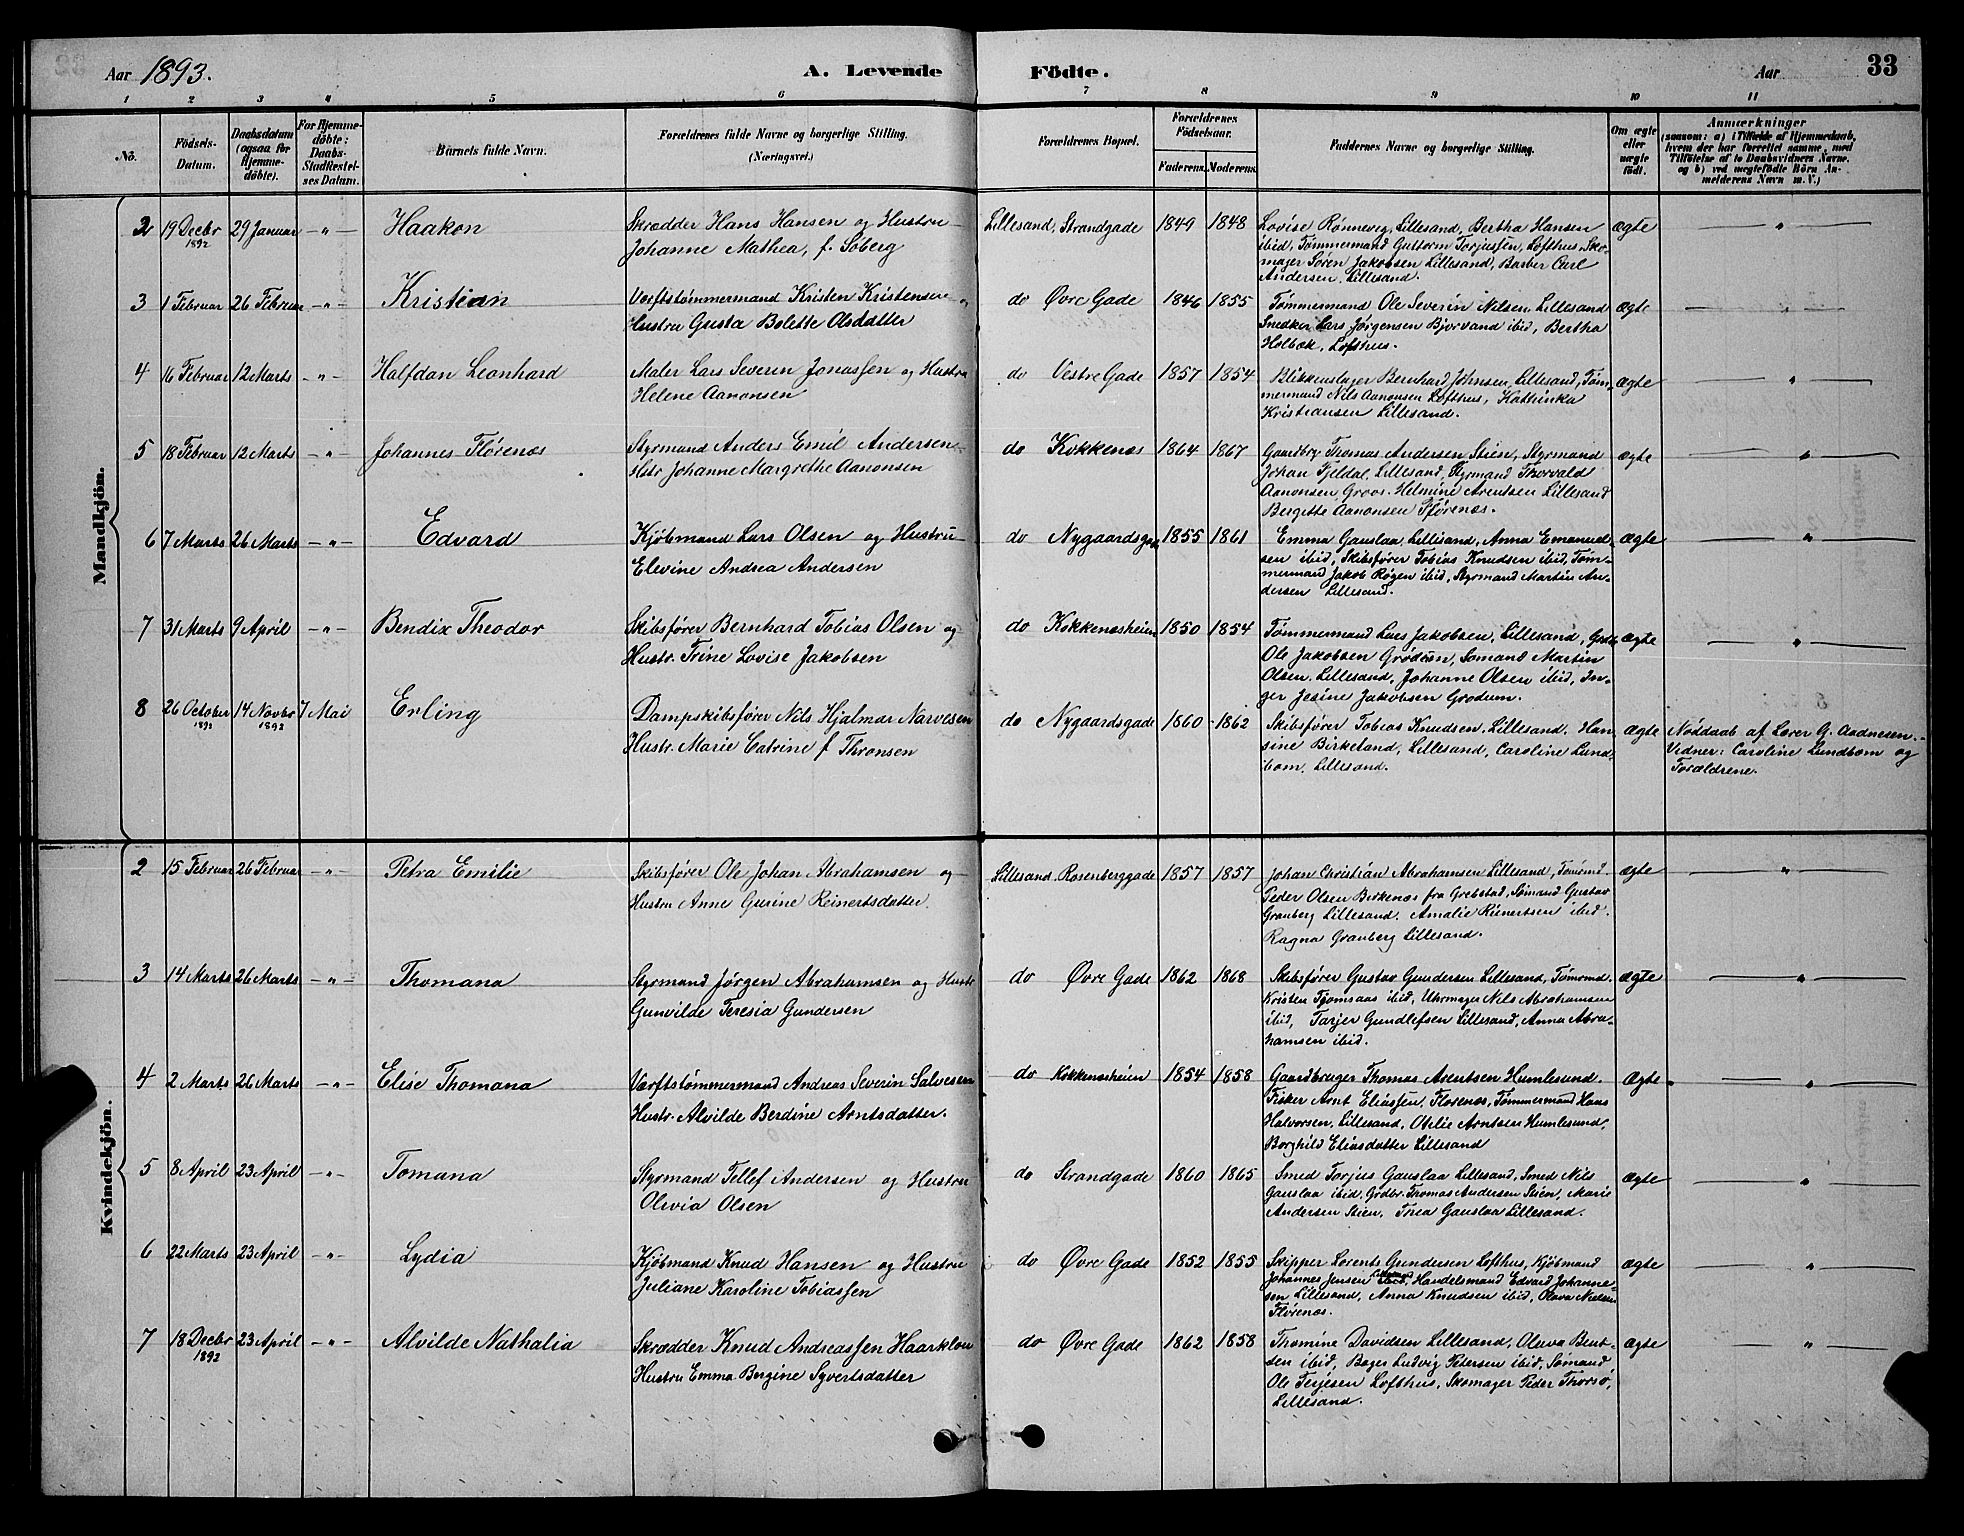 Aar 1893.
A. Levende Födte.
Aar
33
1 2 3 4 5 6 7 8 9 10 11
No.
Födsels-
Datum.
Daabsdatum
(ogsaa for
Hjemme-
döbte).
For Hjemme-
döbte:
Daabs-
Stadfæstel-
ses Datum.
Barnets fulde Navn.
Forældrenes fulde Navne og borgerlige Stilling.
(Næringsvei.)
Forældrenes Bopæl.
Forældrenes
Födselsaar.
Faderens.
Moderens.
Faddernes Navne og borgerlige Stilling.
Om ægte
eller
uægte
födt.
Anmærkninger
(saasom: a) i Tilfælde af Hjemmedaab,
hvem der har forrettet samme, med
Tilföielse af to Daabsvidners Navne.
og b) ved uægtefödte Börn An-
melderens Navn m. V.)
Mandkjön.
2 19 Decbr 1892 29 Januar -"- Haakon
Skrædder Hans Hansen og Hustru
Johanne Mathea, f. Söberg
Lillesand, Strandgade 1849 1848
Lovise Rönnevig, Lillesand, Bertha Hansen
ibid, Tømmermand Guttorm Torjussen, Lofthus, Sko-
mager Sören Jakobsen Lillesand, Barber Carl
Andersen, Lillesand.
Ægte "
3 1 Februar 26 Februar -"- Kristian
Værftstømmermand Kristen Kristensen og
Hustru Gusta Bolette Olsdatter
do Øvre Gade 1846 1855
Tømmermand Ole Severin Nilsen, Lillesand
Snedker Lars Jørgensen Bjorvand ibid, Bertha
Holbæk, Lofthus.
Ægte "
4 16 Februar 12 Marts -"- Halfdan Leonhard
Maler Lars Severin Jonassen og Hustru
Helene Aanonsen
do Vestre Gade 1857 1854
Blikkenslager Bernhard Johnsen, Lillesand, Tøm-
mermand Nils Aanonsen Lofthus, Kathinka
Kristiansen Lillesand.
Ægte "
5 18 Februar 12 Marts -"- Johannes Flørenæs
Styrmand Anders Emil Andersen
Hstr Johanne Margrethe Aanonsen
do Kokkenæs 1864 1867
Gaardbrg Thomas Andersen Stien, Styrmand
Johan Fjeldal, Lillesand, Styrmand Thorvald
Aanonsen, Groos. Helmine Arentsen Lillesand
Bergitte Aanonsen Flørenæs.
Ægte "
6 7 Marts 26 Marts -"- Edvard
Kjøbmand Lars Olsen og Hustru
Elevine Andrea Andersen
do Nygaardsgade 1855 1861
Emma Gauslaa, Lillesand, Anna Emanuel-
sen ibid, Skibsfører Tobias Knudsen ibid, Tøm-
mermand Jakob Røgen ibid, Styrmand Martin An-
dersen Lillesand.
Ægte "
7 31 Marts 9 April -"- Bendix Theodor
Skibsfører Bernhard Tobias Olsen og
Hustr. Trine Lovise Jakobsen
do Kokkenæsheien 1850 1854
Tømmermand Lars Jakobsen, Lillesand, Grdb.
Ole Jakobsen Grødum, Sømand Martin
Olsen. Lillesand, Johanne Olsen ibid, In-
ger Jesine Jakobsen Grødum.
Ægte "
8 26 October 1892 14 Novbr 1892 7 Mai Erling
Dampskibsfører Nils Hjalmar Narvesen
Hustr. Marie Catrine f Thronsen
do Nygaardsgade 1860 1862
Skibsfører Tobias Knudsen, Lillesand. Han-
sine Birkeland, Lillesand, Caroline Lund-
bom, Lillesand.
Ægte
Nøddaab af Lærer G. Aadnesen.
Vidner: Caroline Lundbom og
Forældrene.
Kvindekjön.
2 15 Februar 26 Februar -"- Petra Emilie
Skibsfører Ole Johan Abrahamsen og
Hustru Anne Gurine Reinertsdatter.
Lillesand. Rosenberggade 1857 1857
Johan Christian Abrahamsen Lillesand, Tømrmd
Peder Olsen Birkenæs fra Grebstad, Sømand Gustav
Granberg Lillesand. Amalie Reinertsen ibid.
Ragna Granberg Lillesand.
Ægte "
3 14 Marts 26 Marts -"- Thomana
Styrmand Jørgen Abrahamsen og Hustr
Gunvilde Teresia Gundersen
do Øvre Gade 1862 1868
Skibsfører Gustav Gundersen Lillesand, Tømrmd.
Kristen Tjomsaas ibid, Uhrmager Nils Abrahamsen
ibid, Tarjer Gundlefsen Lillesand, Anna Abra-
hamsen ibid.
Ægte "
4 2 Marts 26 Marts -"- Elise Thomana
Værftstømmermand Andreas Severin Salvesen
Hustr. Alvilde Berdine Arntsdatter.
do Kokkenæsheien 1854 1858
Gaardbruger Thomas Arentsen Humlesund.
Fisker Arnt Eliassen, Florenæs, Tømmermand Hans
Halvorsen, Lillesand, Otilie Arntsen Humlesund,
Borghild Eliasdatter Lillesand
Ægte "
5 8 April 23 April -"- Tomana
Styrmand Tellef Andersen og Hustru
Olevia Olsen
do Strandgade 1860 1865
Smed Torjus Gauslaa Lillesand, Smed Nils
Gauslaa ibid, Grdbr. Thomas Andersen Stien, Marie
Andersen Stien, Thea Gauslaa Lillesand.
Ægte "
6 22 Marts 23 April -"- Lydia
Kjøbmand Knud Hansen og Hustru
Juliane Karoline Tobiassen
do Øvre Gade 1852 1855
Skipper Lorents Gundersen Lofthus, Kjøbmand
Johannes Jensen Handelsmand Edvard Johanne-
sen Lillesand, Anna Knudsen ibid, Olava Nielsen
Flørenæs.
Ægte "
7 18 Decbr 1892 23 April -"- Alvilde Nathalia
Skrædder Knud Andreassen Haarklou
Hustru Emma Bergine Syvertsdatter
do Øvre Gade 1862 1858
Thomine Davidsen Lillesand, Oluva Bent-
sen ibid, Bager Ludvig Petersen ibid, Sømand
Ole Terjesen Lofthus, Skomager Peder Thorsø,
Lillesand.
Ægte "